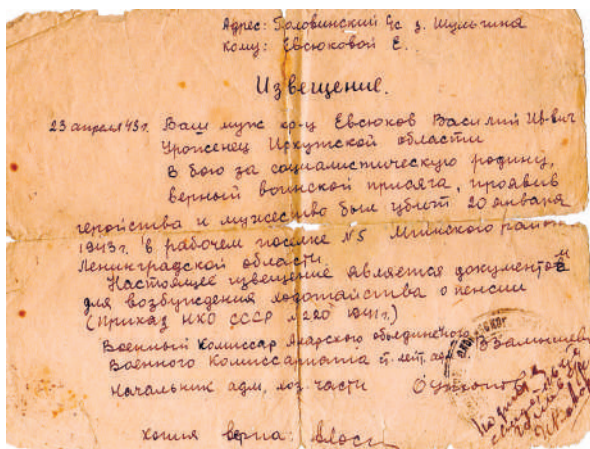 Адрес: Головинский ус з. Шульгина
Кому: Евсюковой Е.
Извещение.
23 апреля 43г. Ваш муж кр-ц Евсюков Василий Ив-вич
Уроженец Иркутской области
В бою за социалистическую родину,
верный воинской присяга, проявив
геройства и мужество был убит 20 января
1943г. в рабочем поселке №5 Мгинского район
Ленинградской области.
Настоящее извещение является документом
для возбуждения ходотайства о пенсии
(приказ НКО СССР №220 1941г.)
Военный Комиссар Аларского объединеного
Военного Комиссариата
Начальник адм. хоз. части
копия верна: